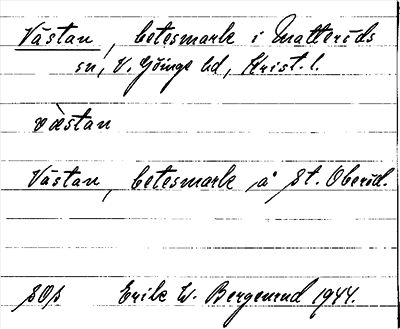 Västan, betesmark i Matteröds
sn, V. Göinge hd, Krist. l.
västan
Västan, betesmark å St. Oberöd.
SOs Erik W. Bergenrud 1944.